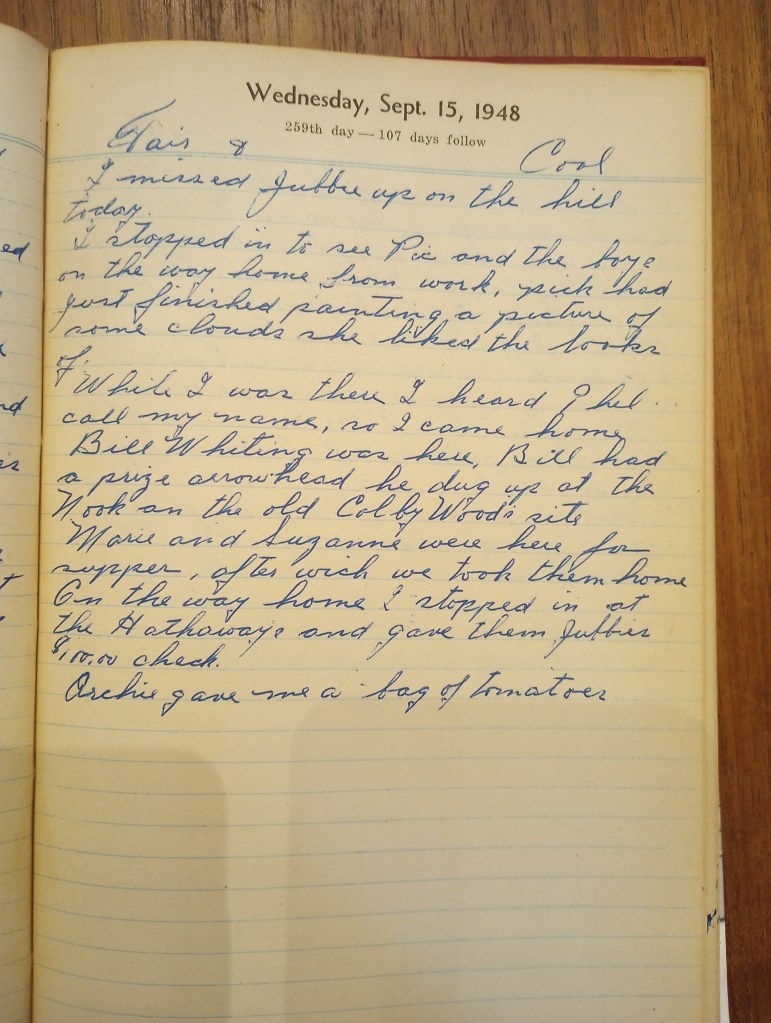 Wednesday, Sept. 15, 1948
259th day — 107 days follow
Fair & Cool
I missed Jubbie up on the hill
today.
I stopped in to see Pic and the boys
on the way home from work, pick had
just finished painting a picture of
some clouds she liked the looks
of.
While I was there I heard
call my name, so I came home
Bill Whiting was here, Bill had
a prize arrowhead he dug up at the
Nook an the old Colby Woods site
Marie and Suzanne were here for
supper, after wich we took them home
On the way home I stopped in at
the Hathaways and gave them Jubbies
check.
Archie gave me a bag of tomatoes